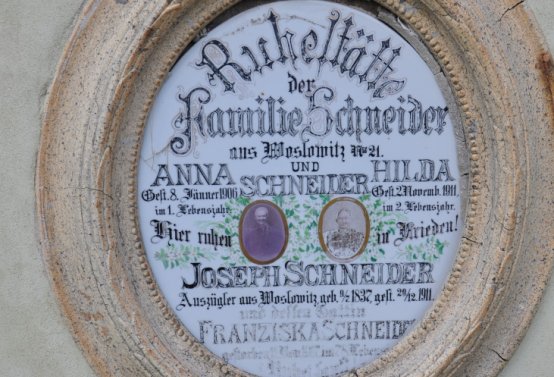 Ruhestätte
der
Familie Schneider
aus Woslowitz No 21.
ANNA UND HILDA
SCHNEIDER
Gest. 8. Jänner 1906 Gest. 2. Novemb. 1911.
im 1. Lebensjahr. im 2. Lebensjahr.
Hier ruhen in Frieden!
JOSEPH SCHNEIDER
Auszügler aus Woslowitz geb. 1837, gest. 29/12. 1911.
und dessen Gattin
FRANZISKA SCHNEIDER
gestorben